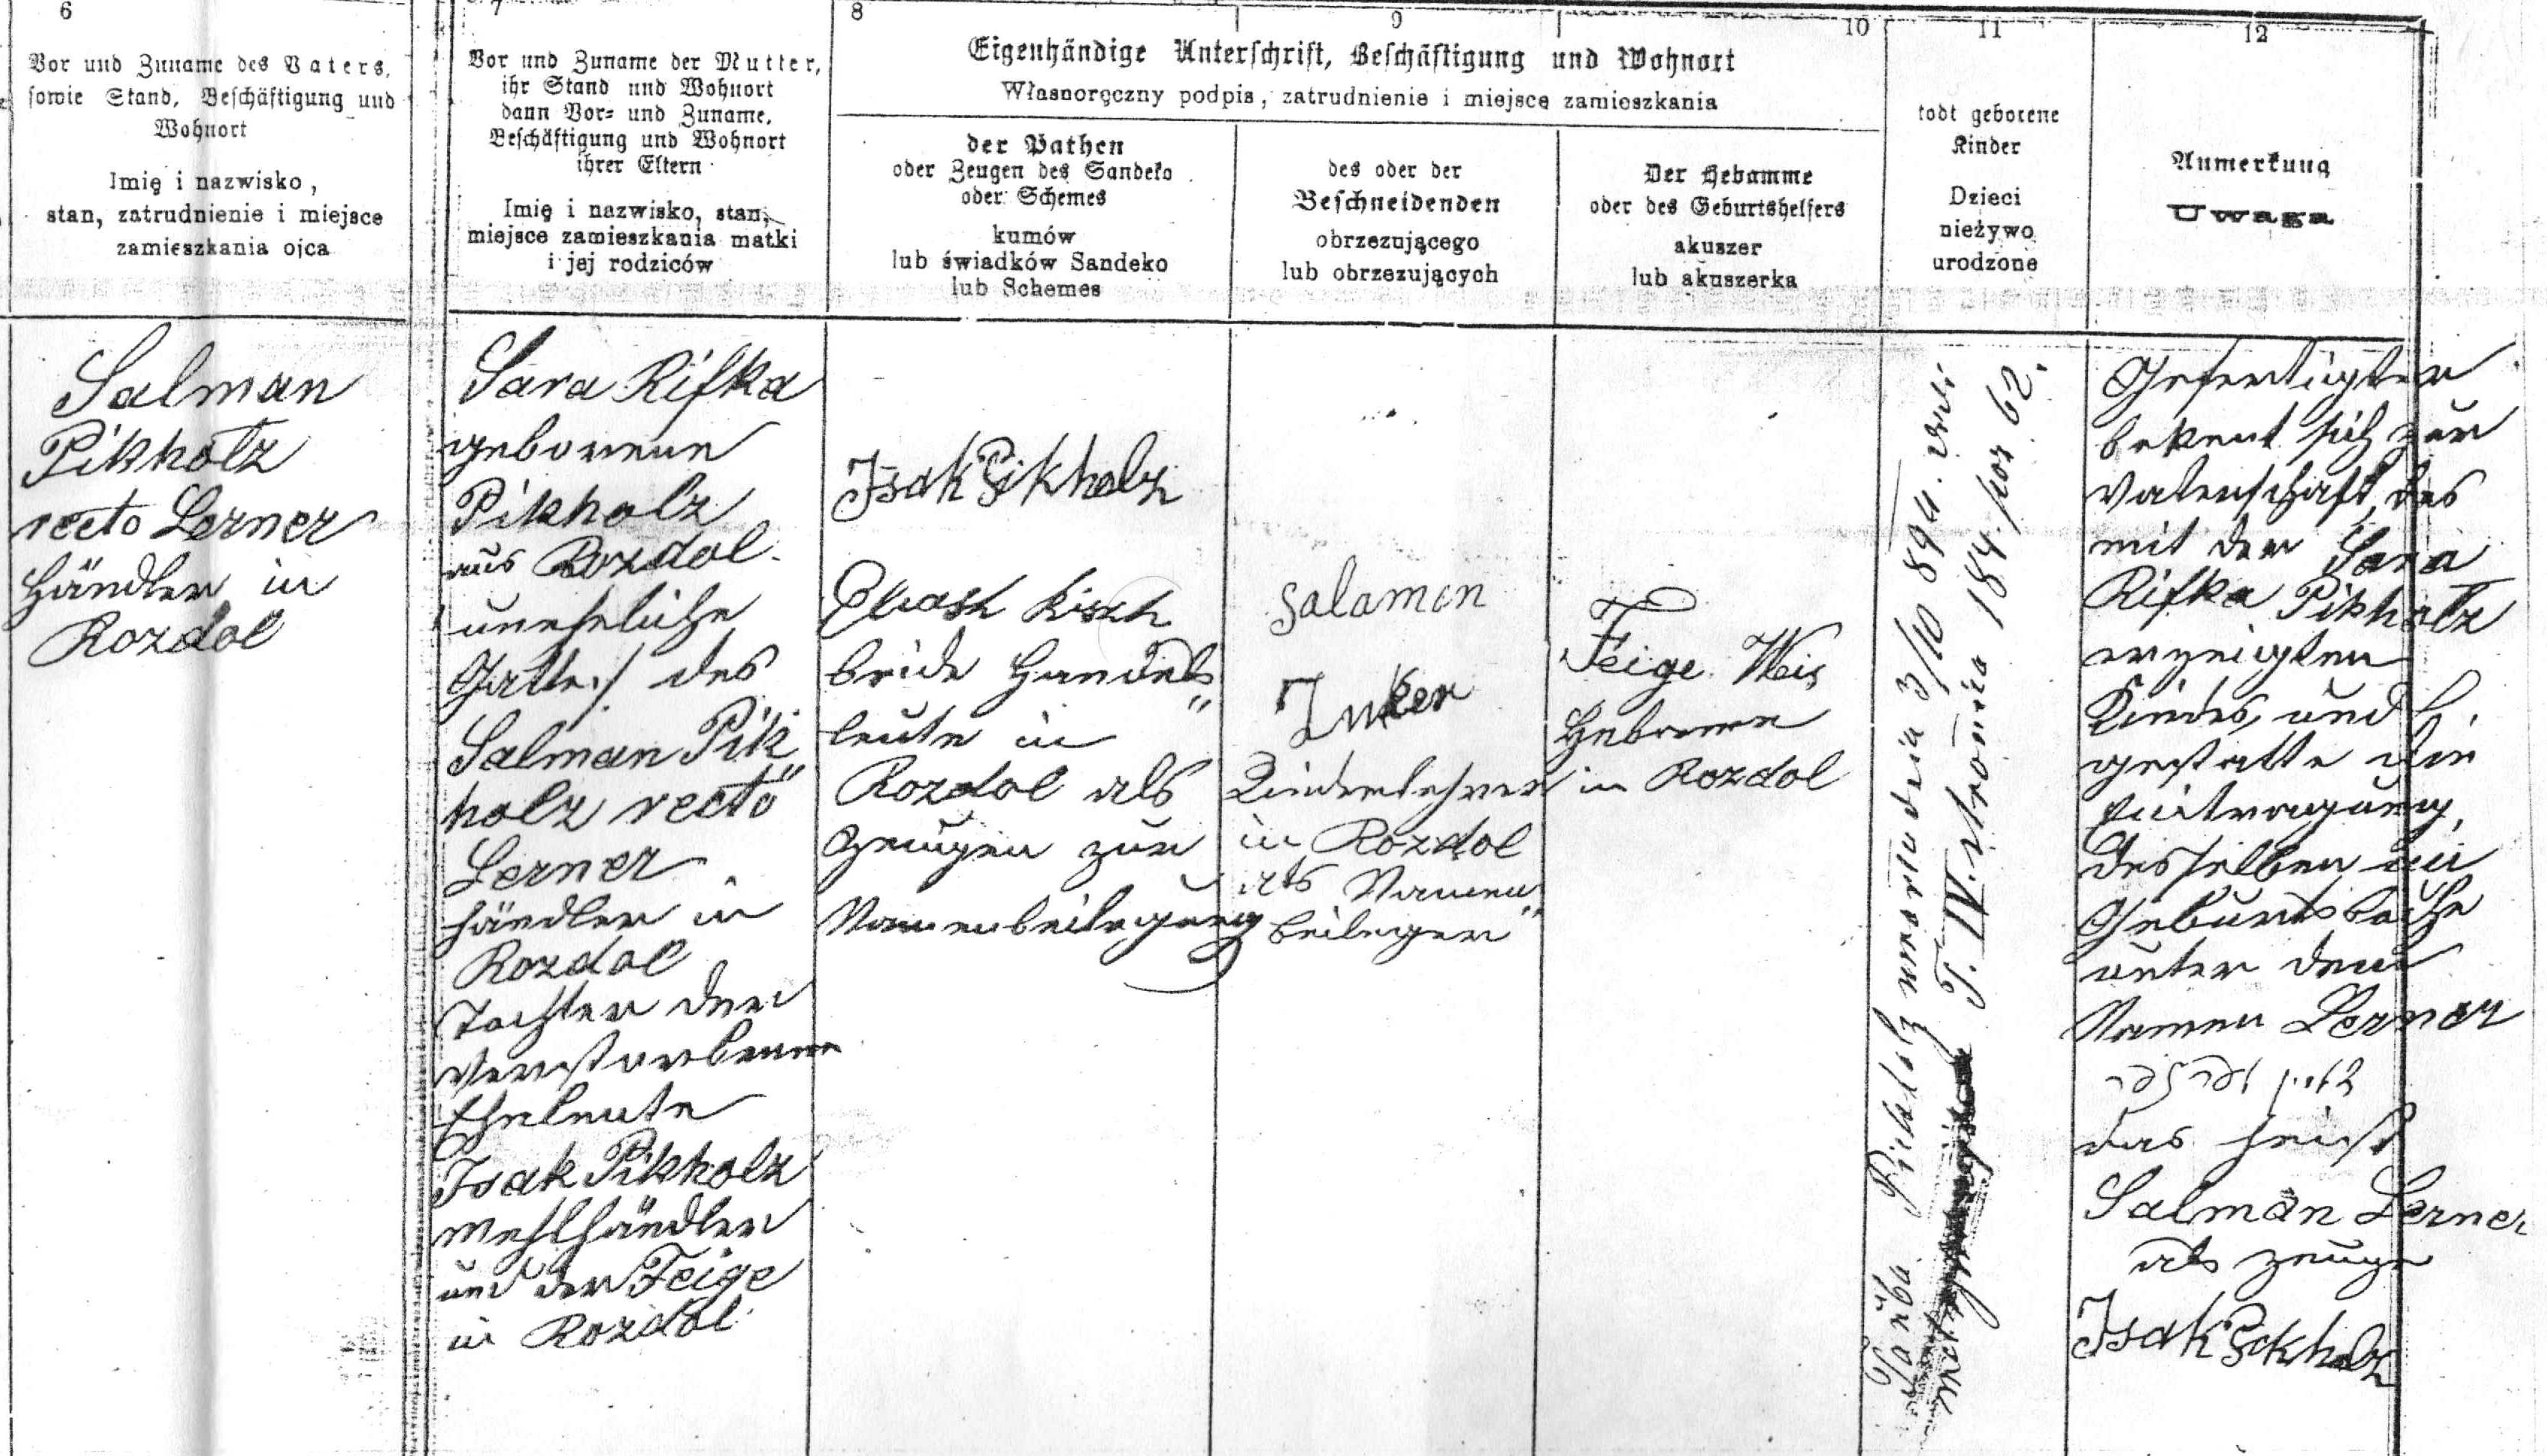 6
Vor und Zuname des Vaters,
sowie Stand, Beschäftigung und
Wohnort
Imię i nazwisko,
stan, zatrudnienie i miejsce
zamieszkania ojca
Salman
Pikholz
recto Lerner
Händler in
Rozdol
7
Vor und Zuname der Mutter,
ihr Stand und Wohnort
dann Vor- und Zuname,
Beschäftigung und Wohnort
ihrer Eltern
Imię i nazwisko, stan,
miejsce zamieszkania matki
i jej rodziców
Sara Rifka
geborene
Pikholz
aus Rozdol
uneheliche
des
Salman Pik„
holz recto
Lerner
Händler in
Rozdol
Tochter der
verstorbenen
Eheleute
Isak Pikholz
Mehlhändler
und der Feige
in Rozdol
8
9
10
Eigenhändige Unterschrift, Beschäftigung und Wohnort
Własnoręczny podpis, zatrudnienie i miejsce zamieszkania
der Pathen
oder Zeugen des Sandeko
oder Schemes
kumów
lub świadków Sandeko
lub Schemes
Isak Pikholz
beide Handels„
leute in
Rozdol als
Zeugen zur
Namenbeilegung
des oder der
Beschneidenden
obrzezującego
lub obrzezujących
Salamon
Kinderlehrer
in Rozdol
als Namen„
beileger
Der Hebamme
oder des Geburtshelfers
akuszer
lub akuszerka
Feige Weis
Hebamme
in Rozdol
11
todt geborene
Kinder
Dzieci
nieżywo
urodzone
Taube Pikholz umarła dnia 3/10 894.
T. IV. stronica 184. poz 62.
12
Anmerkung
Uwaga
Gefertigter
bekent sich zur
Vaterschaft des
mit der Sara
Rifka Pikholz
erzeigten
Kindes und
gestatte die
Eintragung
desselben im
Geburtsbuche
unter dem
Namen Lerner
das heist
Salman Lerner
als Zeuge
Isak Pikholz